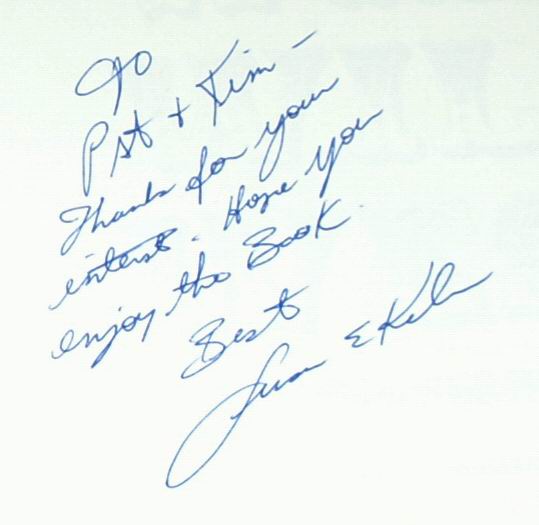 To
Pat + Kim -
Thanks for your
interest. Hope you
enjoy the Book.
Best